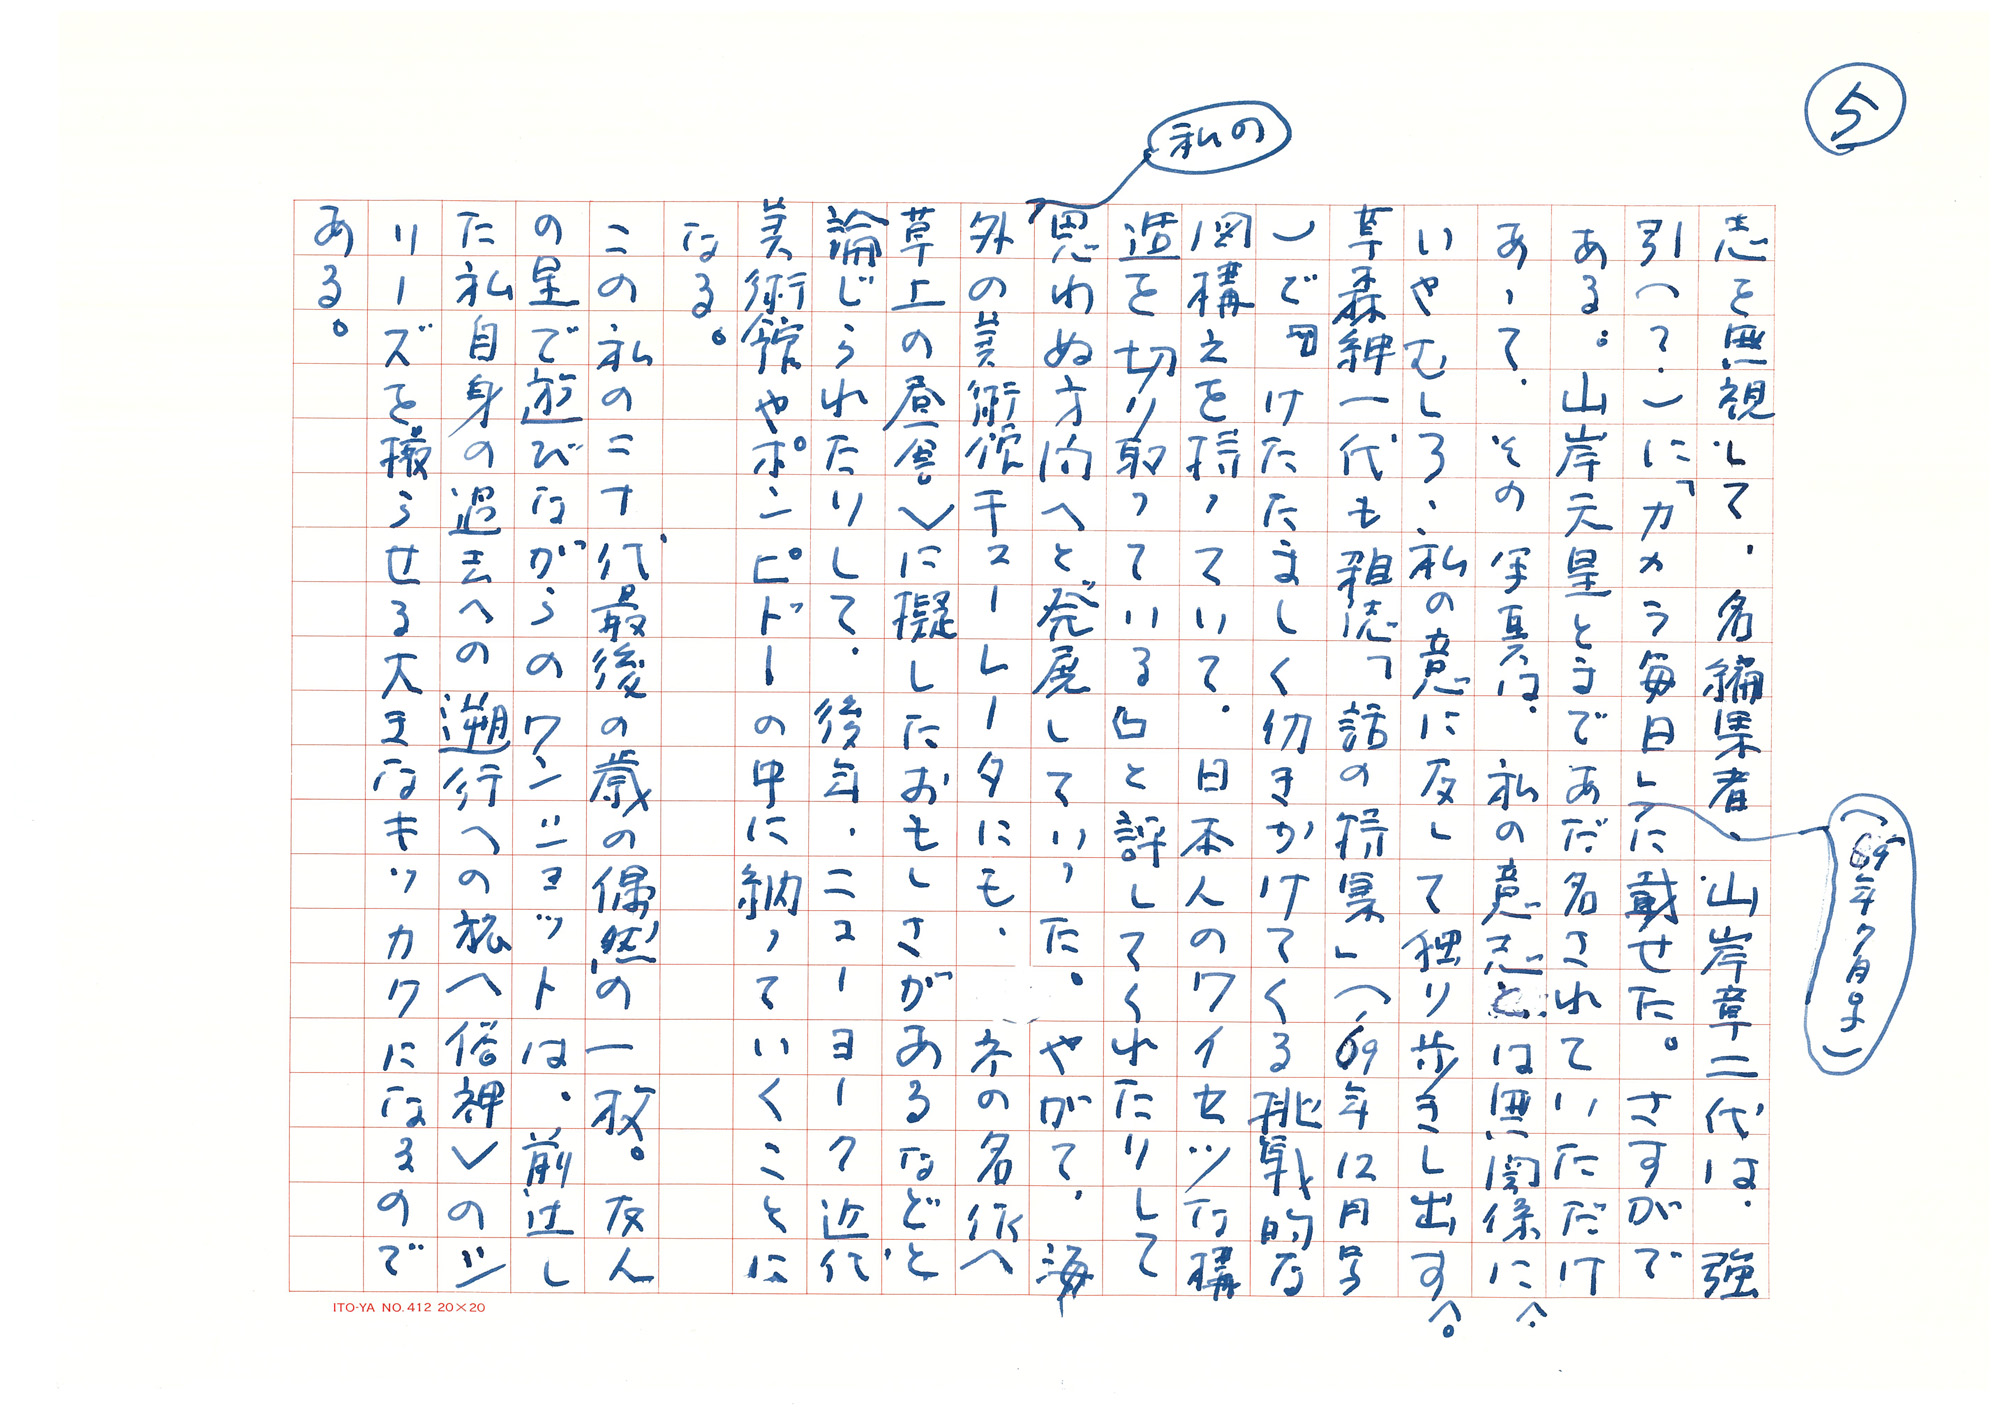 5
志を無視して、名編集者、山岸章二代は、強
引(?)に「カメラ毎日」に載せた。さすがで
(69年7月号)
ある。山岸天皇とまであだ名されていただけ
あって、その写真は、私の意志とは無関係に、
いやむしろ、私の意に反して独り歩きし出す。
草森紳一代も雑誌「話の特集」(69年12月号
)で『けたたましく切きかけてくる挑戦的な
図構えを持っていて、日本人のワイセツな構
造を切り取っている凸と評してくれたりして
私の
思わぬ方向へと発展していった。やがて、海
外の美術館キューレータにも、名作へ
草上の昼食〉に擬したおもしさがあるなどと
論じられたりして、後年、ニューヨーク近代
美術館やポンピドーの中に納っていくことに
なる。
この私の二十代最後の歳の偶然の一枚。友人
の星で遊びながらのワンショットは、前述し
た私自身の過去への遡行への旅へ俗神〉のシ
リーズを撮らせる大きなキッカケになるので
ある。
ITO-YA NO.412 20×20